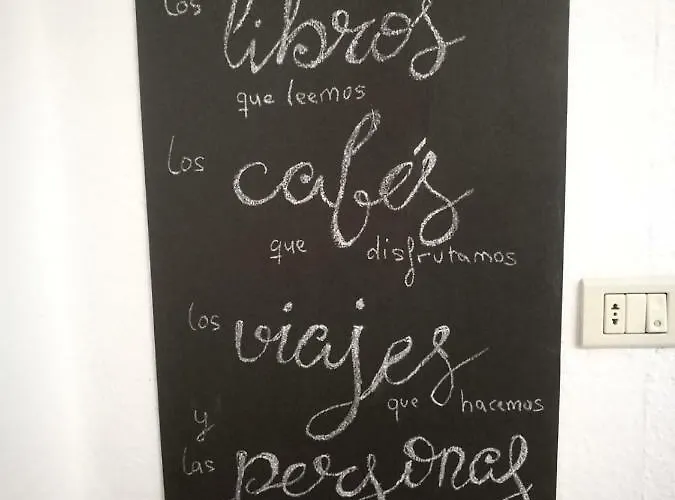 los
libros
que leemos
los
cafés
que disfrutamos
los
viajes
que hacemos
y
las
personas